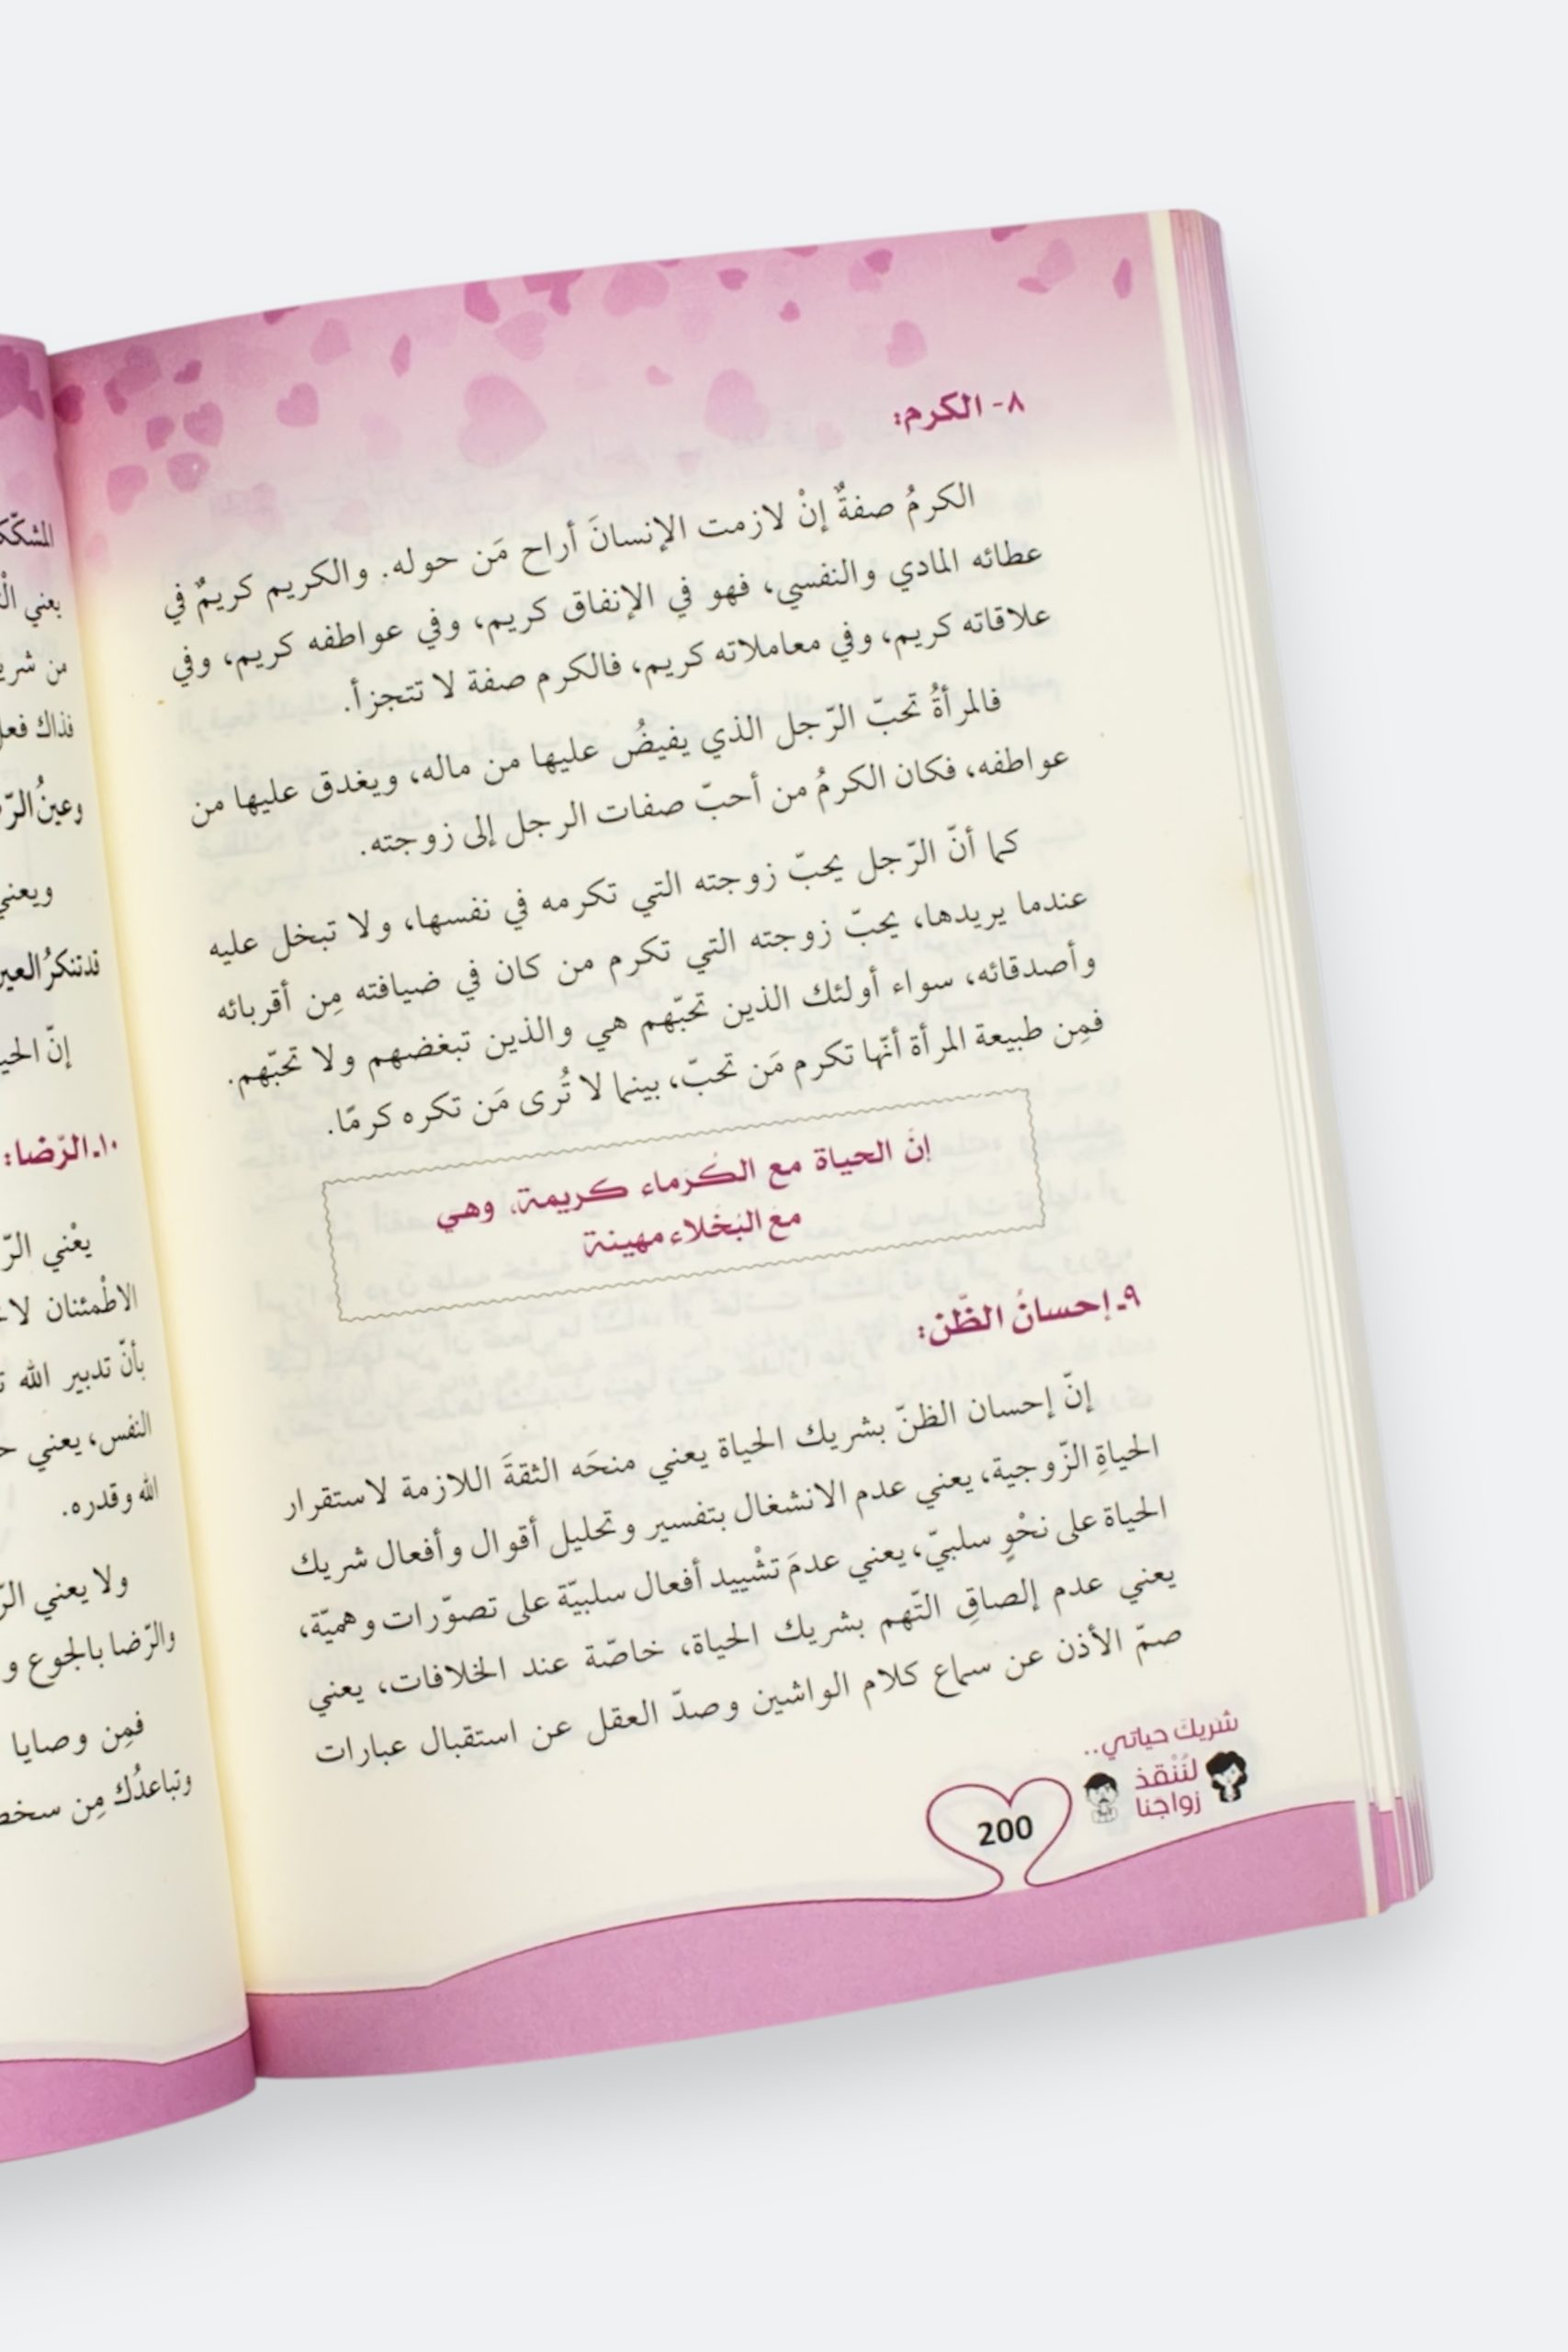 ٨- الكرم:
الكرمُ صفةٌ إنْ لازمت الإنسانَ أراح مَن حوله. والكريم كريمٌ في
عطائه المادي والنفسي، فهو في الإنفاق كريم، وفي عواطفه كريم، وفي
علاقاته كريم، وفي معاملاته كريم، فالكرم صفة لا تتجزأ.
فالمرأةُ تحبّ الرّجل الذي يفيضُ عليها من ماله، ويغدق عليها من
عواطفه، فكان الكرمُ من أحبّ صفات الرجل إلى زوجته.
كما أنّ الرّجل يحبّ زوجته التي تكرمه في نفسها، ولا تبخل عليه
عندما يريدها، يحبّ زوجته التي تكرم من كان في ضيافته مِن أقربائه
وأصدقائه، سواء أولئك الذين تحبّهم هي والذين تبغضهم ولا تحبّهم.
فمِن طبيعة المرأة أنّها تكرم مَن تحبّ، بينما لا تُرى مَن تكره كرمًا.
إنَّ الحياة مع الكُرَماء كريمة، وهي
مع البُخَلاء مهينة
٩ـ إحسانُ الظّن:
إنّ إحسان الظنّ بشريك الحياة يعني منحَه الثقةَ اللازمة لاستقرار
الحياةِ الزّوجية، يعني عدم الانشغال بتفسير وتحليل أقوال وأفعال شريك
الحياة على نحْوٍ سلبيّ، يعني عدمَ تشْييد أفعال سلبيّة على تصوّرات وهميّة،
يعني عدم إلصاقِ التّهم بشريك الحياة، خاصّة عند الخلافات، يعني
صمّ الأذن عن سماع كلام الواشين وصدّ العقل عن استقبال عبارات
شريك حياتي..
لنُنْقذ
زواجنا
200
يعني
من
فذاك
وعينُ
ويعني
إنّ
١٠ـ الرّضا:
يعْني
الاطْمئنان
بأنّ تدبير الله
النفس، يعني
الله وقدره.
ولا يعني
والرّضا بالجوع و
فمِن وصايا
وتباعدُك مِن